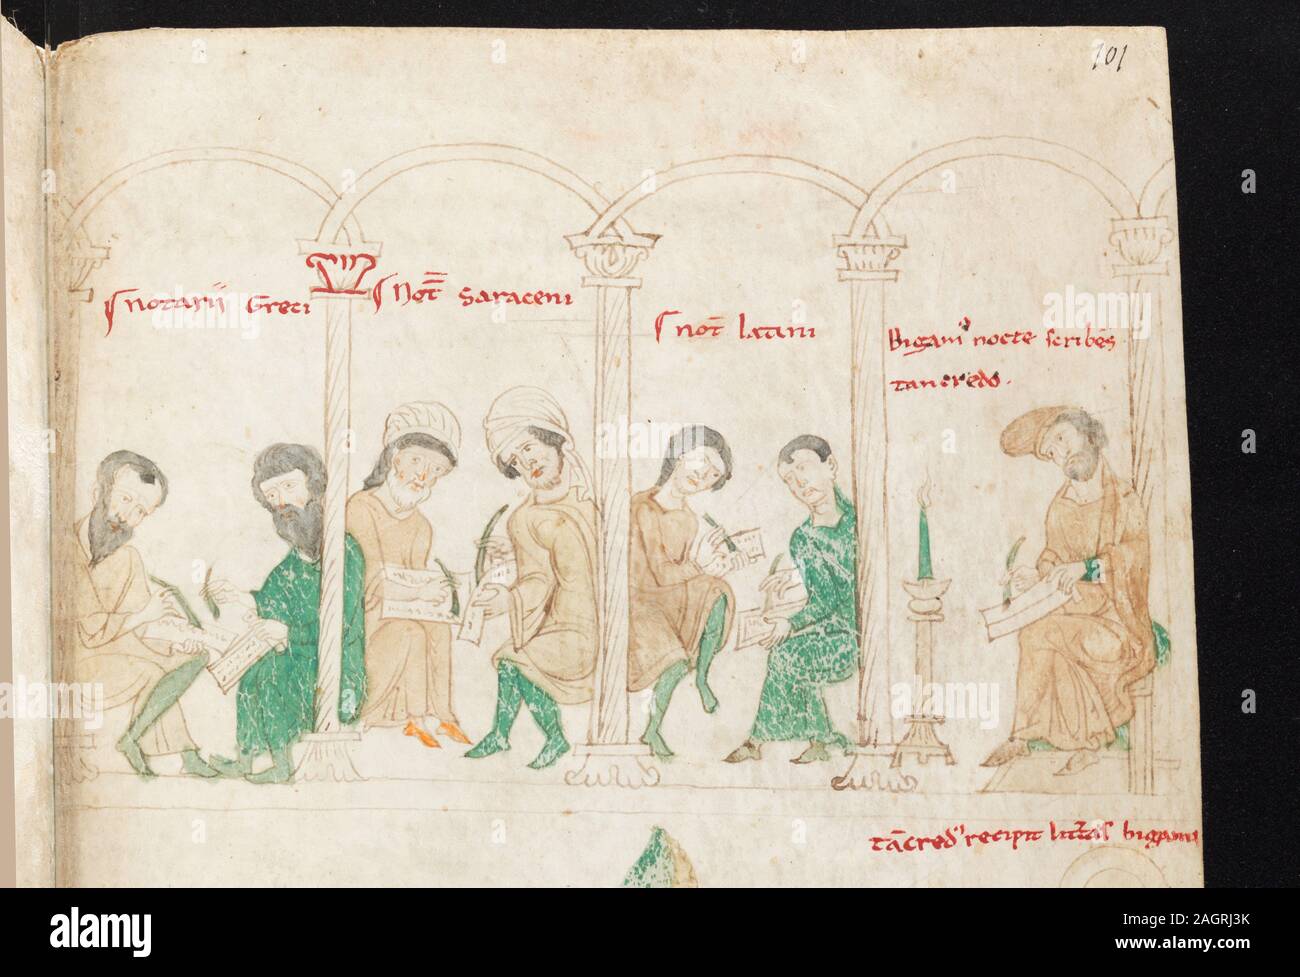 101
Notarii Greci
Not̄ Saraceni
Not̄ latini
Bigamꝰ nocte scribēs
tancredo.
tācredꝰ recipit litt̄as bigami
a
alamy
alamy
Image ID: 2AGRJ3K
www.alamy.com